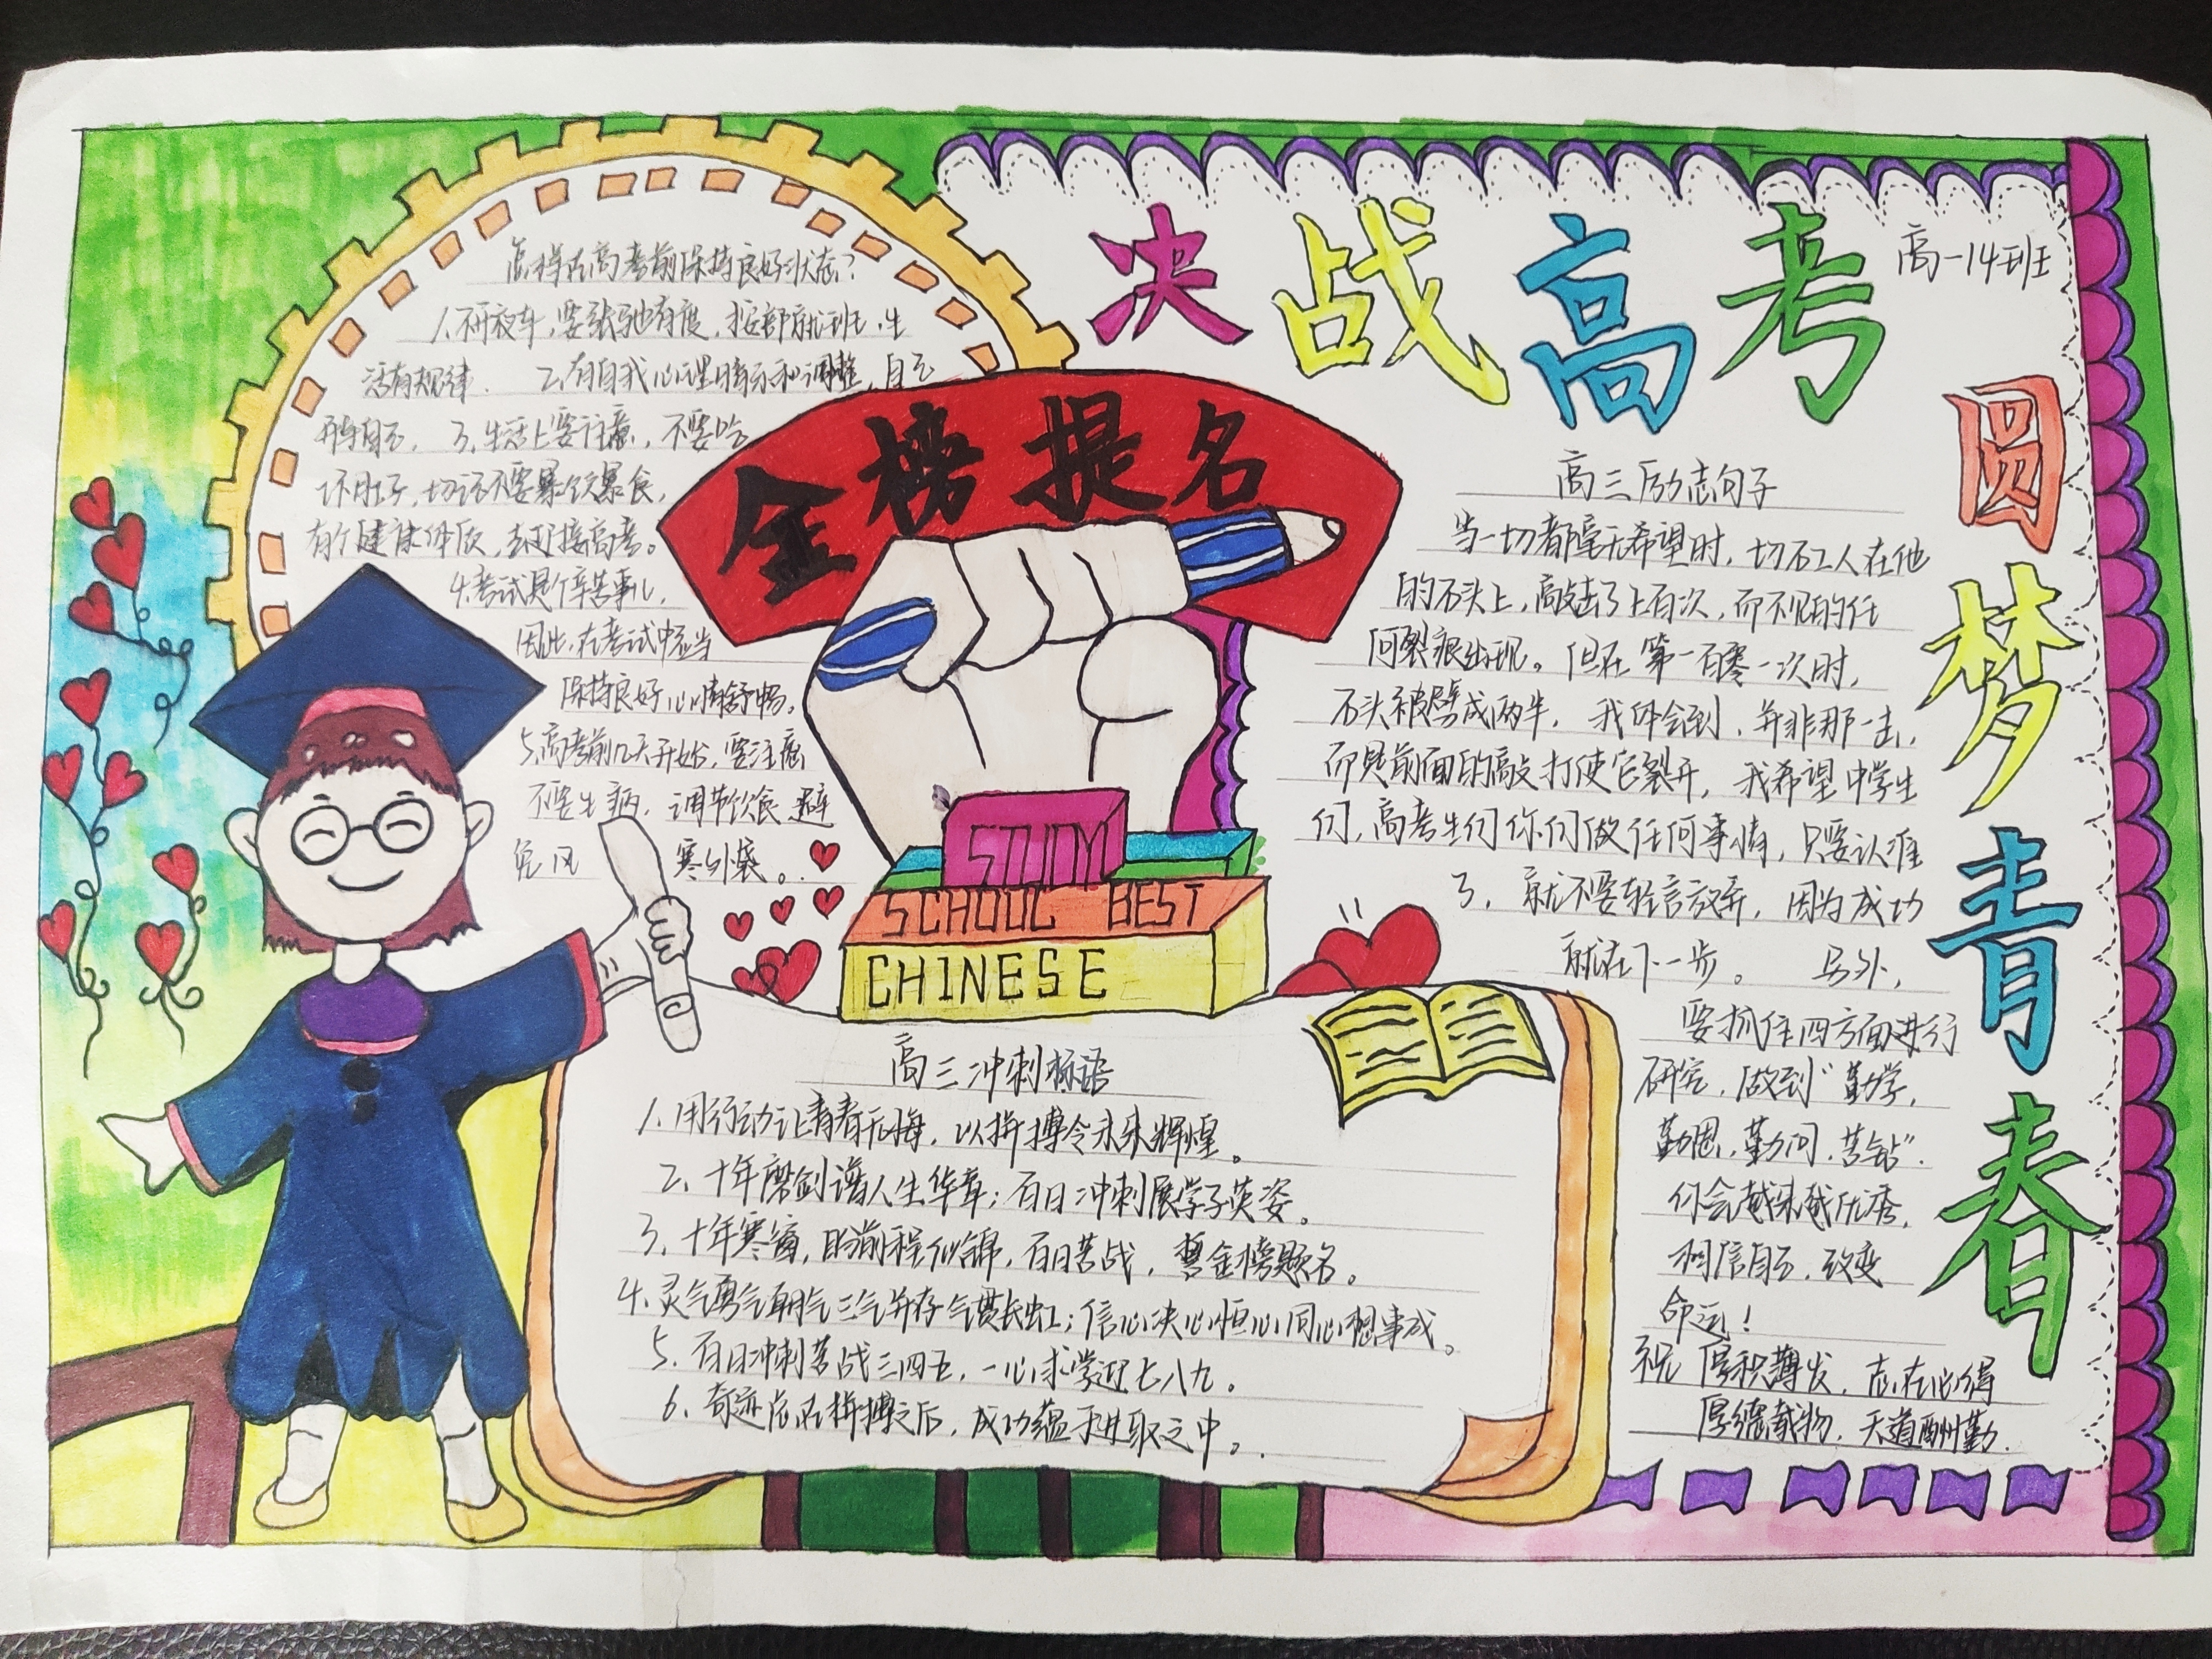 决战高考
高一14班
圆梦青春
怎样在高考前保持良好状态?
1.不开夜车,要张弛有度,按部就班,生
活有规律. 2.有自我心理暗示和调整,自己
开导自己. 3.生活上要注意,不要吃
坏肚子,切记不要暴饮暴食,
有个健康体质,去迎接高考。
4.考试是个辛苦事儿,
因此,在考试中应当
保持良好心情舒畅。
5.高考前几天开始,要注意
不要生病,调节饮食,避
免风 寒外袭。
金榜提名
STUDY
SCHOOL BEST
CHINESE
高三励志句子
当一切都毫无希望时,切石工人在他
的石头上,敲击了上百次,而不见的任
何裂痕出现。但在第一百零一次时,
石头被劈成两半. 我体会到,并非那一击,
而是前面的敲打使它裂开,我希望中学生
们,高考生们你们做任何事情,只要认准
了,就不要轻言放弃,因为成功
就在下一步。 另外,
要抓住四方面进行
研究,做到"勤学,
勤思,勤问,苦钻".
你会越来越优秀,
相信自己,改变
命运!
祝 厚积薄发,志在必得
厚德载物,天道酬勤.
高三冲刺标语
1.用行动让青春无悔,以拼搏令未来辉煌。
2.十年磨剑谱人生华章;百日冲刺展学子英姿。
3.十年寒窗,盼前程似锦,百日苦战,誓金榜题名。
4.灵气勇气朝气三气并存气贯长虹;信心决心恒心同心想事成。
5.百日冲刺苦战三四五,一心求学迎七八九。
6.奇迹总在拼搏之后,成功蕴于进取之中。